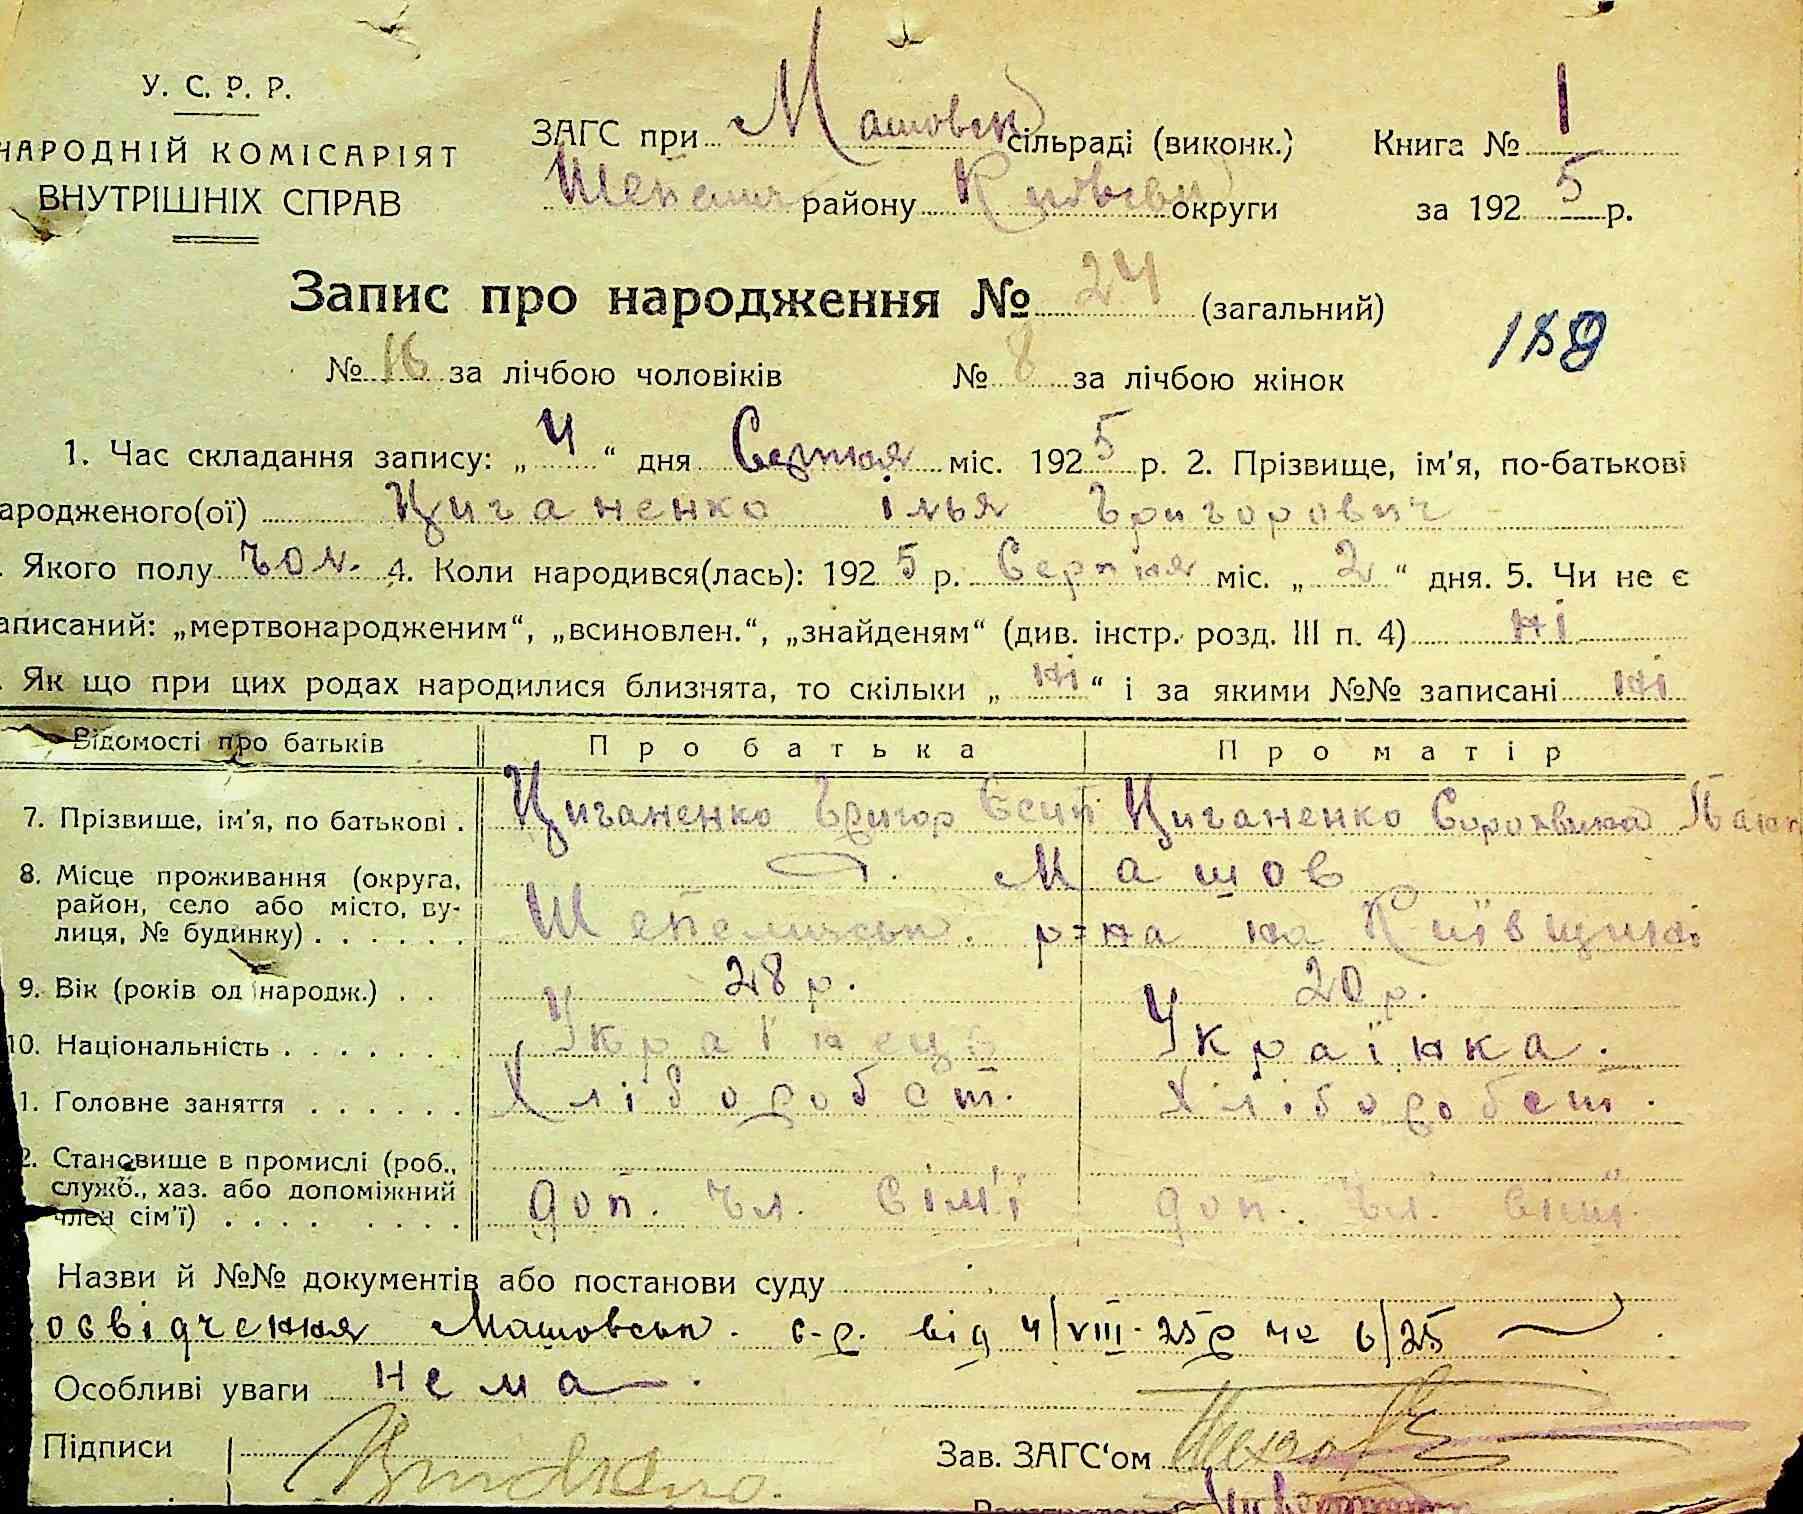 У. С. Р. Р.
НАРОДНІЙ КОМІСАРІЯТ
ВНУТРІШНІХ СПРАВ
ЗАГС при Машовск сільраді (виконк.) Книга № 1
Шепелич району Київськ округи за 1925 р.
Запис про народження № 24 (загальний)
№ 16 за лічбою чоловіків № 8 за лічбою жінок
189
1. Час складання запису: „4“ дня Серпня міс. 1925 р. 2. Прізвище, ім'я, по-батькові
ародженого(ої) Циганенко Ілья Григорович
Якого полу чол. 4. Коли народився(лась): 1925 р. Серпня міс. „2“ дня. 5. Чи не є
аписаний: „мертвонародженим“, „всиновлен.“, „знайденям“ (див. інстр. розд. III п. 4) ні
Як що при цих родах народилися близнята, то скільки „ні“ і за якими №№ записані ні
Відомості про батьків Про батька Про матір
7. Прізвище, ім'я, по батькові . Циганенко Григор Єсип Циганенко
8. Місце проживання (округа, район, село або місто, вулиця, № будинку) . . . . . . с. Машов
Шепелическ. р-на на Київщині
9. Вік (років од народж.) . . 28 р. 20 р.
10. Національність . . . . . . . Українець Українка.
1. Головне заняття . . . . . . Хлібороbст. Хлібороbст.
2. Становище в промислі (роб., служб., хаз. або допоміжний член сім'ї) . . . . . . . . доп. чл. сім'ї доп. чл. сім.
Назви й №№ документів або постанови суду
освідчення Машовськ. с-р. від 4/VIII-25р на 6/25
Особливі уваги нема.
Підписи
Зав. ЗАГС'ом